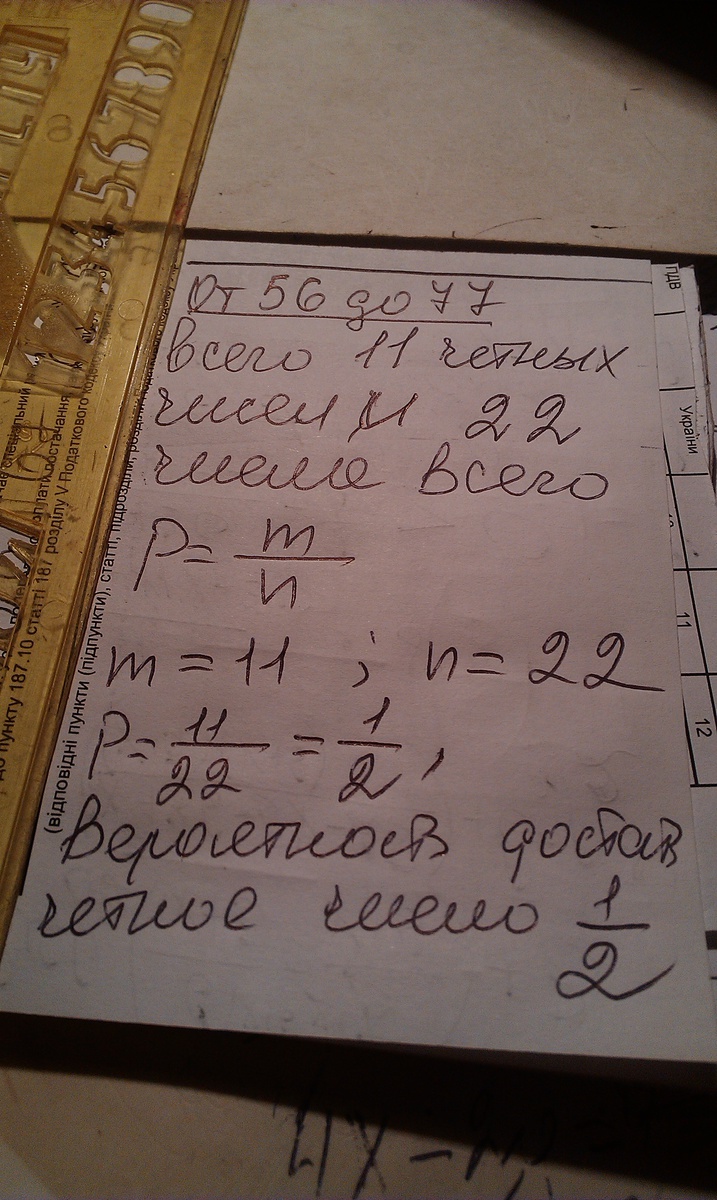 1234567890
От 56 до 77
всего 11 четных
чисел и 22
числа всего
P = m/n
m = 11 ; n = 22
P = 11/22 = 1/2 ,
Вероятность достать
четное число 1/2
ПДВ
України
11
12
(відповідні пункти (підпункти), статті, підрозділи, розділи
до пункту 187.10 статті 187 розділу V Податкового кодексу